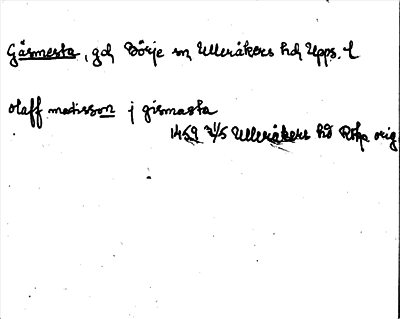 Gåsmesta, gd Börje sn Ulleråkers hd Upps. l
olaff matisson j gismasta
1459 21/5 Ulleråkers hd Rhp orig